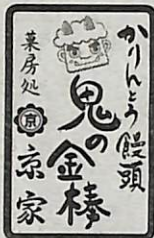 かりんとう饅頭
鬼の金棒
菓房処
京
京家